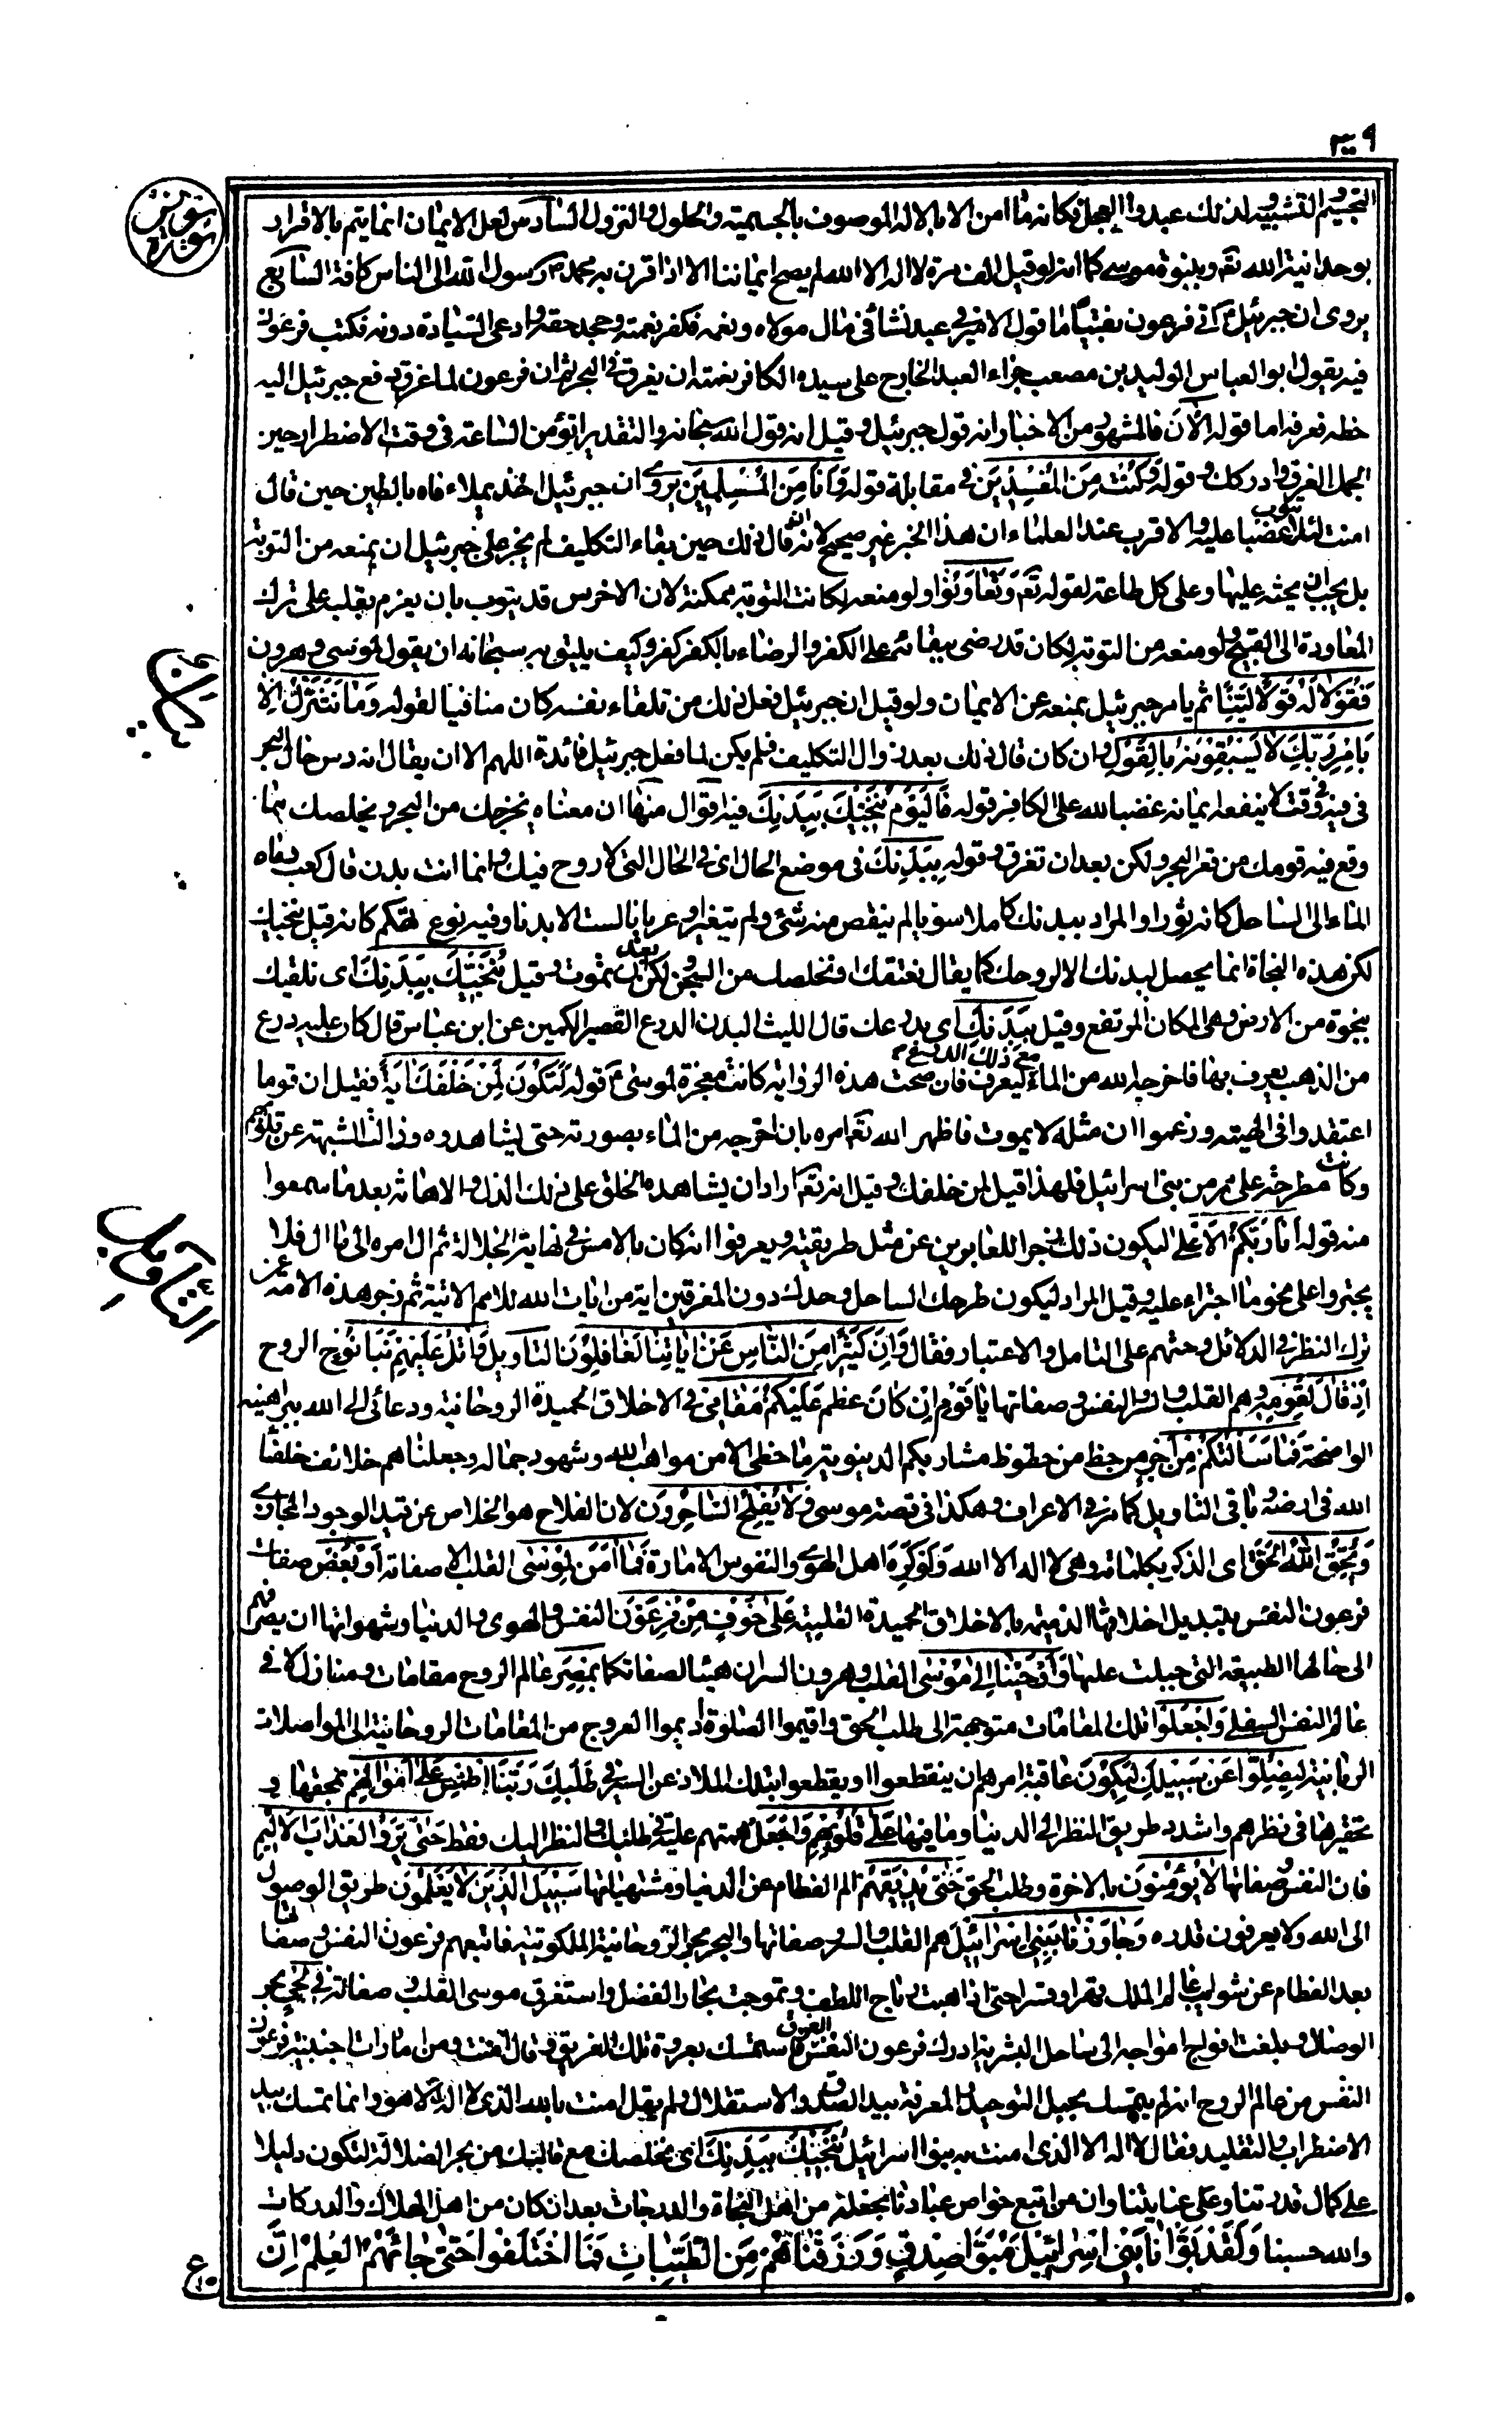 ٣٠٩
سورة يونس
التجسيم والتشبيه ولذلك عبدوا العجل فكانه ما امن الا بالاله الموصوف بالجسمية والحلول والنزول السادس لعل الايمان انما يتم بالاقرار
بوحدانية الله تعم وبنبوة موسى كما انه لو قيل الف مرة لا اله الا الله لم يصح ايماننا الا اذا قرن به محمد رسول الله الى الناس كافة السابع
يروى ان جبرئيل اتى فرعون بفتيا ما قول الامير في عبد نشأ في مال مولاه ونعمه فكفر نعمته وجحد حقه وادعى السيادة دونه فكتب فرعون
فيه يقول ابو العباس الوليد بن مصعب جزاء العبد الخارج على سيده الكافر نعمته ان يغرق في البحر ثم ان فرعون لما غرق دفع جبرئيل اليه
خطه فعرفه اما قوله الآن فالمشهور من الاخبار انه قول جبرئيل وقيل انه قول الله سبحانه والتقدير اتؤمن الساعة في وقت الاضطرار حين
الجمك الغرق وادركك وقوله وكنت من المفسدين في مقابلة قوله وانا من المسلمين يروى ان جبرئيل اخذ يملاء فاه بالطين حين قال
امنت لئلا يتوب غضبا عليه والاقرب عند العلماء ان هذا الخبر غير صحيح لانه ان قال ذلك حين بقاء التكليف لم يجز على جبرئيل ان يمنعه من التوبة
بل يجب ان يحثه عليها وعلى كل طاعة لقوله تعم وتعاونوا ولو منعه لكانت التوبة ممكنة لان الاخرس قد يتوب بان يعزم بقلبه على ترك
المعاودة الى القبيح ولو منعه من التوبة لكان قد رضى ببقائه على الكفر والرضاء بالكفر كفر وكيف يليق به سبحانه ان يقول لموسى وهرون
فقولا له قولا لينا ثم يامر جبرئيل بمنعه عن الايمان ولو قيل ان جبرئيل فعل ذلك من تلقاء نفسه كان منافيا لقوله وما نتنزل الا
بامر ربك لا يسبقونه بالقول وان كان قال ذلك بعد زوال التكليف فلم يكن لما فعل جبرئيل فائدة اللهم الا ان يقال انه دس حال البحر
في فيه في وقت لا ينفعه ايمانه غضبا لله على الكافر قوله فاليوم ننجيك ببدنك فيه اقوال منها ان معناه نخرجك من البحر ونخلصك مما
وقع فيه قومك من قعر البحر ولكن بعد ان تغرق وقوله ببدنك في موضع الحال اى في الحال التى لا روح فيك وانما انت بدن قال كعب رماه
الماء الى الساحل كانه ثور او المراد ببدنك كاملا سويا لم ينقص منه شئ ولم يتغير او عريانا لست الا بدنا وفيه نوع تهكم كانه قيل ننجيك
لكن هذه النجاة انما يحصل لبدنك لا لروحك كما يقال نعتقك ونخلصك من السجن ولكن بعد ان تموت وقيل ننجيك ببدنك اى نلقيك
بنجوة من الارض وهى المكان المرتفع وقيل ببدنك اى بدرعك قال الليث البدن الدرع القصير الكمين عن ابن عباس قال كان عليه درع
من الذهب يعرف بها فاخرجه الله من الماء مع ذلك الدرع ليعرف فان صحت هذه الرواية كانت معجزة لموسى قوله لتكون لمن خلفك اية فقيل ان قوما
اعتقدوا في الهيته وزعموا ان مثله لا يموت فاظهر الله تعم امره بان اخرجه من الماء بصورته حتى يشاهدوه وزالت الشبهة عن قلوبهم
وكانت مطرحه على ممر من بنى اسرائيل فلهذا قيل لمن خلفك وقيل انه تعم اراد ان يشاهده الخلق على ذلك الذل والاهانة بعد ما سمعوا
منه قوله انا ربكم الاعلى ليكون ذلك زجرا للغابرين عن مثل طريقته ويعرفوا انه كان بالامس في نهاية الجلالة ثم ال امره الى ما ال فلا
يجتروا على نحو ما اجتراء عليه وقيل المراد ليكون طرحك الساحل وحدك دون المغرقين اية من ايات الله للامم الاتية ثم زجر هذه الامة عن
ترك النظر في الدلائل وحثهم على التامل والاعتبار فقال وان كثيرا من الناس عن اياتنا لغافلون التاويل واتل عليهم نبأ نوح الروح
اذ قال لقومه وهم القلب والسر والنفس وصفاتها يا قوم ان كان عظم عليكم مقامى في الاخلاق الحميدة الروحانية ودعائى الى الله ببراهينه
الواضحة فما سالتكم من اجر من حظ من حظوظ مشاربكم الدنيوية ما حظى الا من مواهب الله وشهود جماله وجعلناهم خلائف خلفاء
الله في ارضه باقى التاويل كما مر في الاعراف وهكذا في قصة موسى ولا يفلح الساحرون لان الفلاح هو الخلاص عن قيد الوجود المجازى
ويحق الله الحق اى الذكر بكلماته وهى لا اله الا الله ولو كره اهل الهوى والنفوس الامارة فما امن لموسى القلب الا صفاته او بعض صفات
فرعون النفس بتبديل اخلاقها الذميمة بالاخلاق الحميدة القلبية على خوف من فرعون النفس والهوى والدنيا وشهواتها ان يصرفهم
الى حالها الطبيعة التى جبلت عليها واوحينا الى موسى القلب وهرون السر ان هيئا لصفاتكما بمصر عالم الروح مقامات ومنازل لا في
عالم النفس السفلى واجعلوا تلك المقامات متوجهة الى طلب الحق واقيموا الصلوة اديموا العروج من المقامات الروحانية الى المواصلات
الربانية ليضلوا عن سبيلك ليكون عاقبة امرهم ان ينقطعوا او يقطعوا بتلك الملاذ عن السير في طلبك ربنا اطمس على اموالهم بمحقها و
تحقيرها في نظرهم واشدد طريق النظر الى الدنيا وما فيها على قلوبهم واجعل همتهم علية في طلبك والنظر اليك فقط حتى يروا العذاب الاليم
فان النفس وصفاتها لا يؤمنون بالاخرة وطلب الحق حتى يذيقهم الم الفطام عن الدنيا ومشتهياتها سبيل الذين لا يعلمون طريق الوصول
الى الله ولا يعرفون قدره وجاوزنا ببنى اسرائيل هم القلب والسر وصفاتها والبحر بحر الروحانية الملكوتية فاتبعهم فرعون النفس وصفاتها
بعد الفطام عن شوايب عالم الملك قهرا وقسرا حتى اذا هبت رياح اللطف وتموجت بحار الفضل واستغرق موسى القلب وصفاته في لجى بحر
الوصال وبلغت افواج امواجه الى ساحل البشرية ادرك فرعون النفس الغرق فاستمسك بعروة تلك الغريق وقال امنت ومن امارات اجنبية فرعون
النفس من عالم الروح انه لم يتمسك بحبل التوحيد والمعرفة بيد الصدق والاستقلال ولم يقل امنت بالله الذى لا اله الا هو وانما تمسك بيد
الاضطراب والتقليد فقال لا اله الا الذى امنت به بنوا اسرائيل ننجيك ببدنك اى نخلصك مع قالبك من بحر الضلالة لتكون دليلا
على كمال قدرتنا وعلى عنايتنا وان من اتبع خواص عبادنا نجعله من اهل النجاة والدرجات بعد ان كان من اهل الهلاك والدركات
والله حسبنا ولقد بوانا بنى اسرائيل مبوا صدق ورزقناهم من الطيبات فما اختلفوا حتى جائهم العلم ان
التاويل
ع